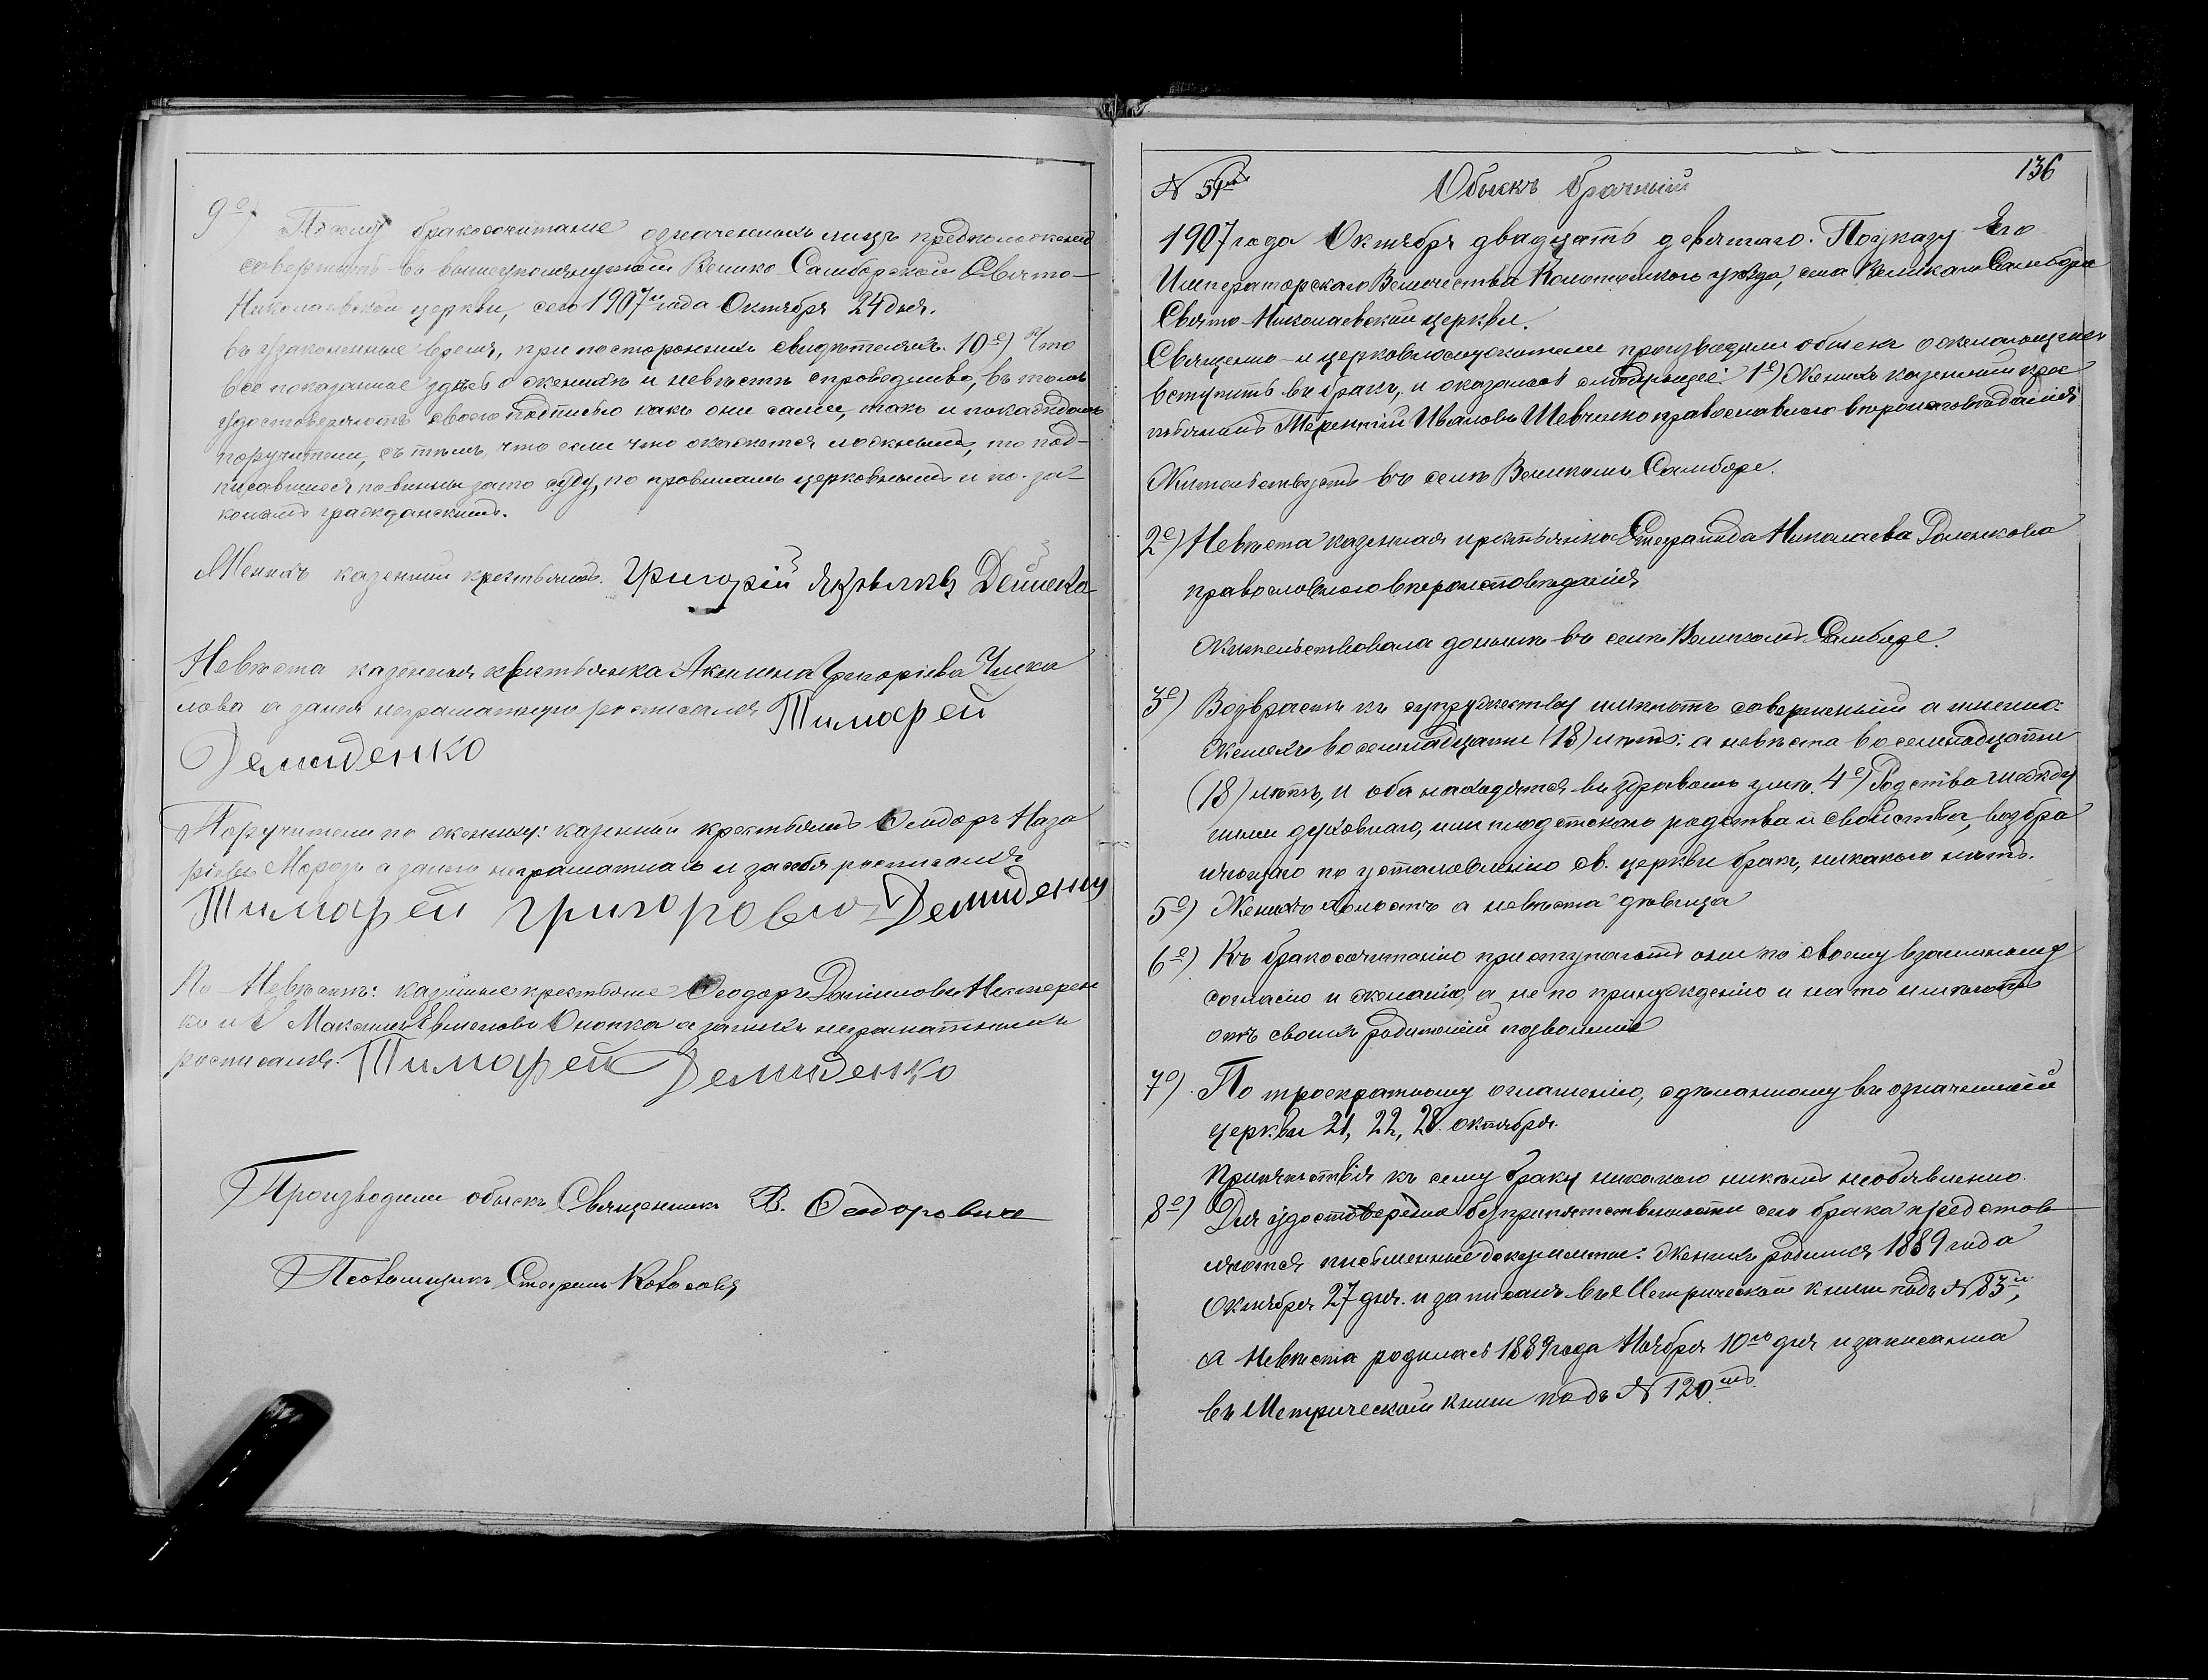 9е) Посему бракосочетание означенныхъ лицъ предположено
совершить въ вышеупомянутой Велико-Самборской Свято-
Николаевской церкви, сего 1907го года Октября 24 дня.
въ узаконенные время, при постороннихъ свидѣтеляхъ. 10е) Что
все показанное здѣсь о женихѣ и невѣстѣ справедливо, въ томъ
удостовѣряютъ своею подписью какъ они сами, такъ и по каждомъ
поручители, съ тѣмъ, что если что окажется ложнымъ, то под-
писавшіеся повинны за то суду, по правиламъ церковнымъ и по за-
конамъ гражданскимъ.
Женихъ казенный крестьянинъ Григорій Дейнека
Невѣста казенная крестьянка Акилина Григорієва
лова а за нея неграматную росписался Тимофей
Демиденко
Поручители по женихѣ: казенный крестьянинъ Феодоръ Наза
ріевъ Морозъ а за него неграматнаго и за себя росписался
Тимофей Григоровъ Демиденко
По Невѣстѣ: казенные крестьяне Феодоръ Даниловъ Нестерен
ко и Максимъ Евменовъ Онопка а за нихъ неграматныхъ
росписался: Тимофей Демиденко
Производили обыскъ Священникъ В. Феодоровичъ
Псаломщикъ Стефанъ
136
N 51мъ Обыскъ брачный
1907 года Октября двадцать девятаго. По указу Его
Императорскаго Величества Конотопскаго уѣзда, села Великаго Самбора
Свято-Николаевской церкви.
Священно- и церковнослужители производили обыскъ о желающихъ
вступить въ бракъ, и оказалось слѣдующее: 1е) Женихъ казенный крес
тьянинъ Терентій Ивановъ Шевченко православнаго вѣроисповѣданія
Жительствуетъ въ селѣ Великомъ Самборѣ.
2е) Невѣста казенная крестьянка Степанида Николаева Роленкова
православнаго вѣроисповѣданія
Жительствовала донынѣ въ селѣ Великомъ Самборе.
3е) Возврастъ къ супружеству имѣютъ совершенный а именно:
Женихъ восемнадцати (18) лѣтъ: а невѣста восемнадцати
(18) лѣтъ, и оба находятся въ здравомъ умѣ. 4е) Родства между
ними духовнаго, или плодстскаго родства и свойства, возбра
няющаго по установленію св. церкви бракъ, никакого нѣтъ.
5е) Женихъ юношъ а невѣста дѣвица
6е) Къ бракосочитанію приступаютъ они по своему взаимному
согласію и желанію, а не по принужденію и на то имѣютъ
отъ своихъ родителей позволеніе
7е) По троекратному оглашенію, сдѣланному въ означенной
церкви 21, 22, 28. октября.
Препятствія къ сему браку никакого никѣмъ необъявленно.
8е) Для удостоверения безпрепятственности сего брака предстов
ляются письменные документы: Женихъ родился 1889 года
Октября 27 дня. и записанъ въ Метрической книги подъ N 83м,
а Невѣста родилась 1889 года Ноября 10го дня и записанна
въ Метрической книги подъ N 120мъ.